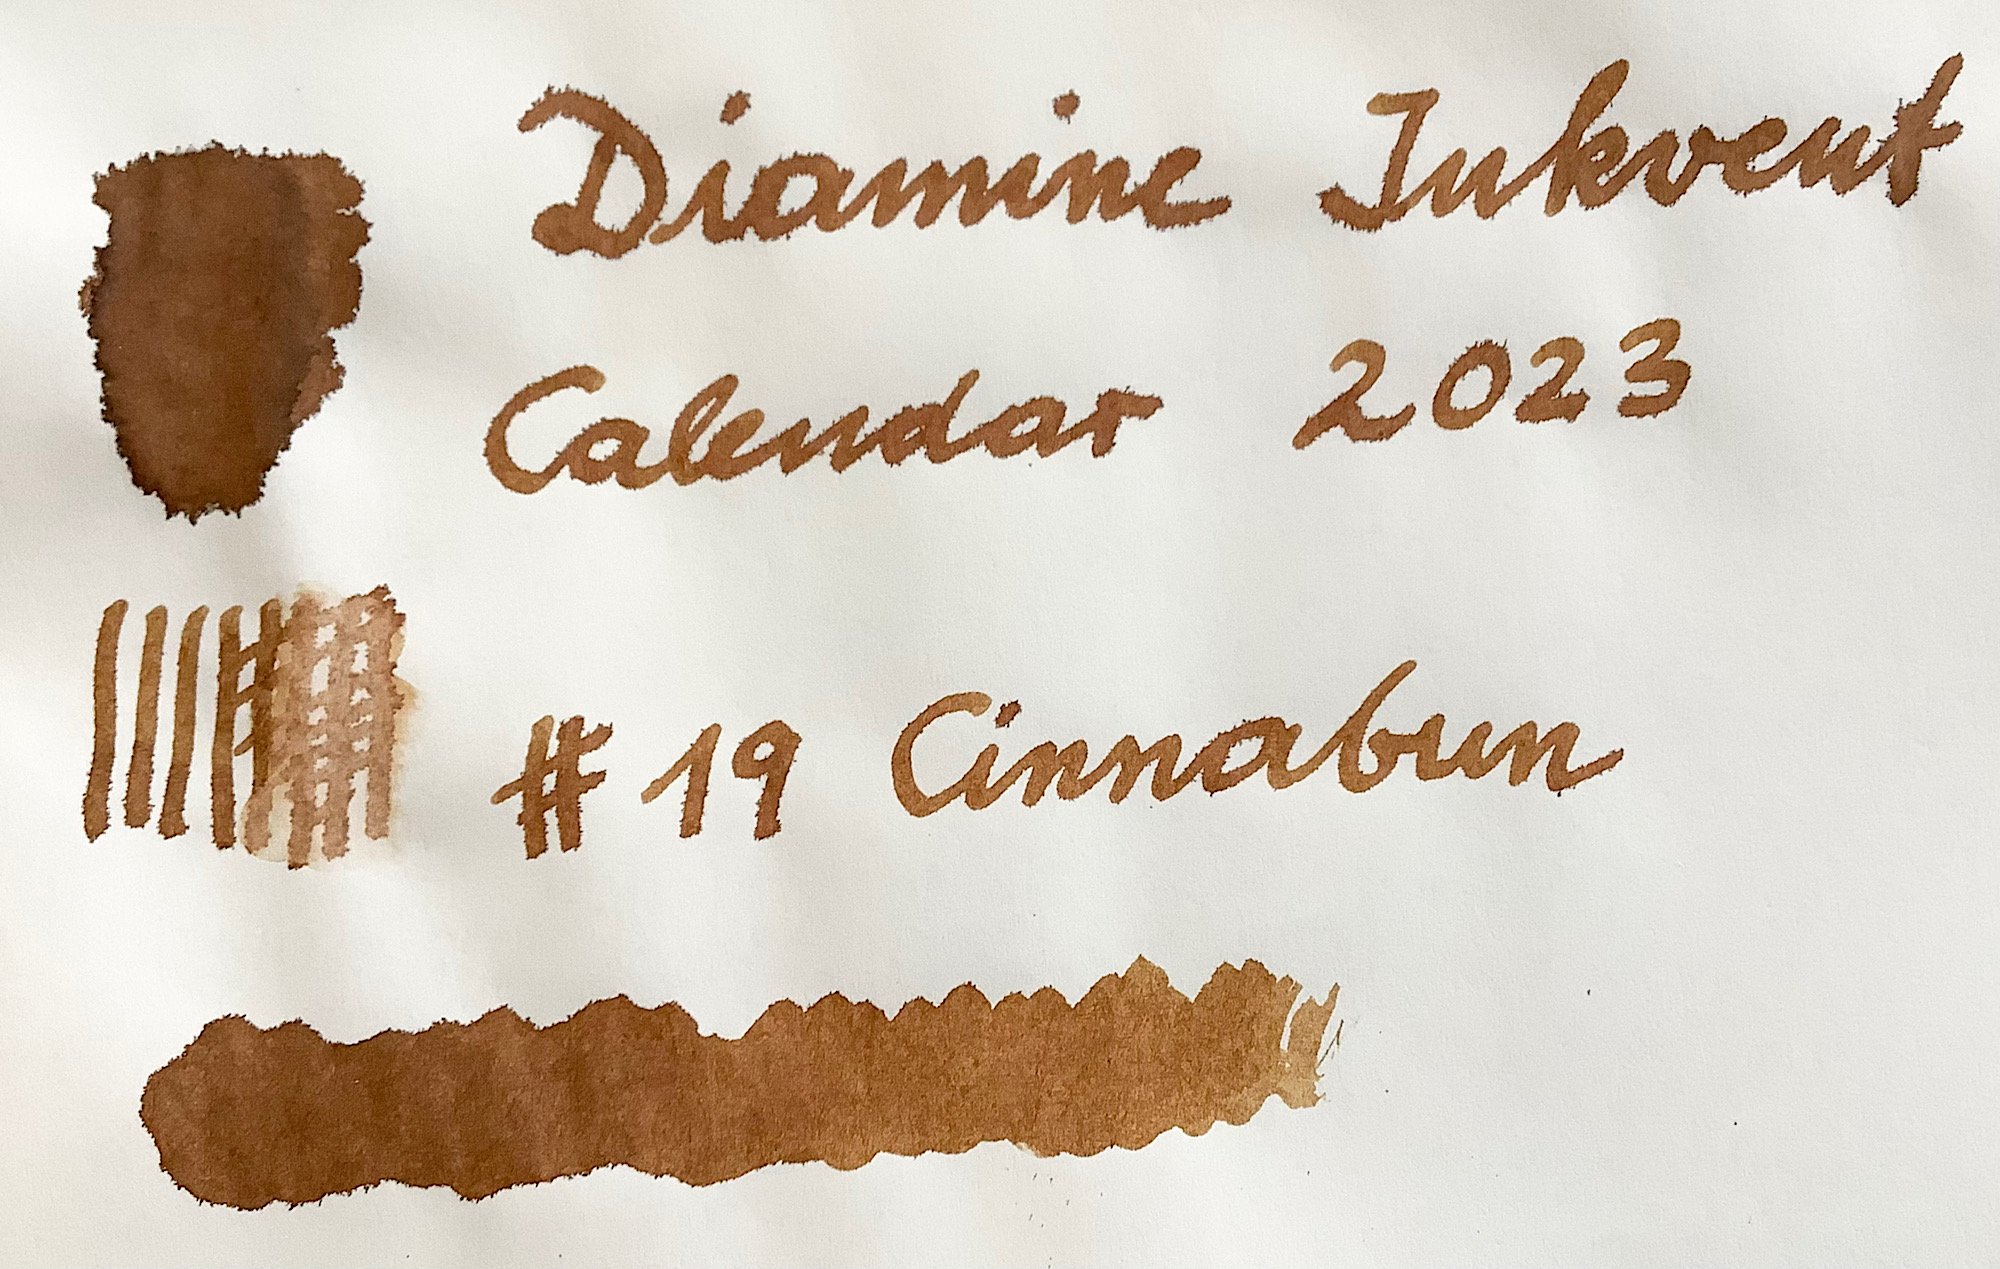 Diamine Inkvent
Calendar 2023
# 19 Cinnabun